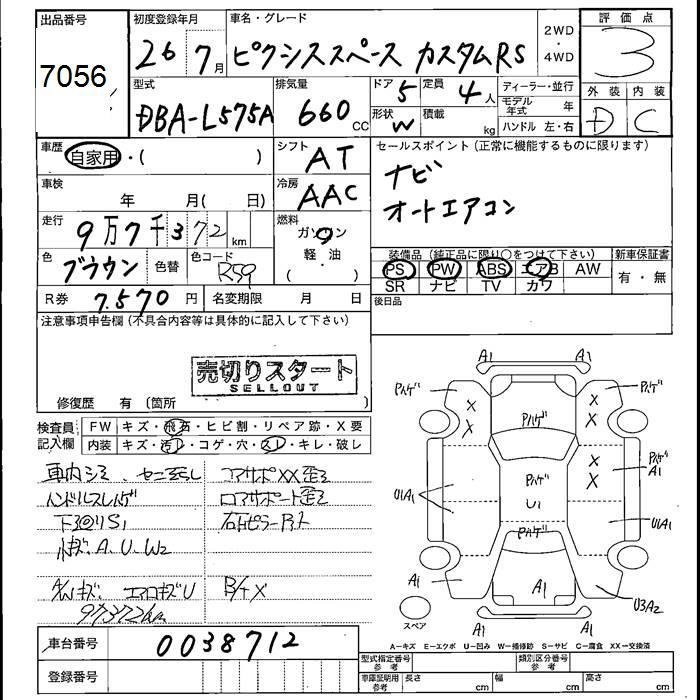 出品番号 初度登録年月 車名・グレード 評価点
7056 26 7月 ピクシススペース カスタムRS 2WD・4WD 3
型式 排気量 ドア 定員 ディーラー・並行 外装 内装
DBA-L575A 660 CC 5 4人 モデル年式 年 D C
形状 W 積載 kg ハンドル 左・右
車歴 自家用・( ) シフト AT セールスポイント(正常に機能するものに限ります)
車検 年 月( 日) 冷房 AAC ナビ
オートエアコン
走行 9万7千372km 燃料 ガソリン 軽油 ( )
装備品(純正品に限り○をつけて下さい) 新車保証書
色 ブラウン 色替 色コード R59 PS PW ABS エアB AW 有・無
SR ナビ TV カワ
R券 7.570円 名変期限 月 日 後日品
注意事項申告欄(不具合内容等は具体的に記入して下さい)
売切りスタート
SELLOUT
修復歴 有(箇所 )
検査員記入欄 FW キズ・飛石・ヒビ割・リペア跡・X要
内装 キズ・汚レ・コゲ・穴・スレ・キレ・破レ
車内シミ コアサポXX歪ミ
ハンドルスレハゲ ロアサポート歪ミ
下回りS1
小キズ.A.U.W2
A/Wキズ. エアロキズU
97372km
A1 A1
Pハゲ Pハゲ Pハゲ
X X X X
Pハゲ X X Pハゲ A1
U1A1 U1 U1A1
Pハゲ
A1 A1 U3A2
スペア A1 A1
A-キズ E-エクボ U-凹み W-補修跡 S-サビ C-腐食 XX-交換済
車台番号 0038712 型式指定番号参考 類別区分番号参考
登録番号 車庫証明用参考 長さ cm 幅 cm 高さ cm